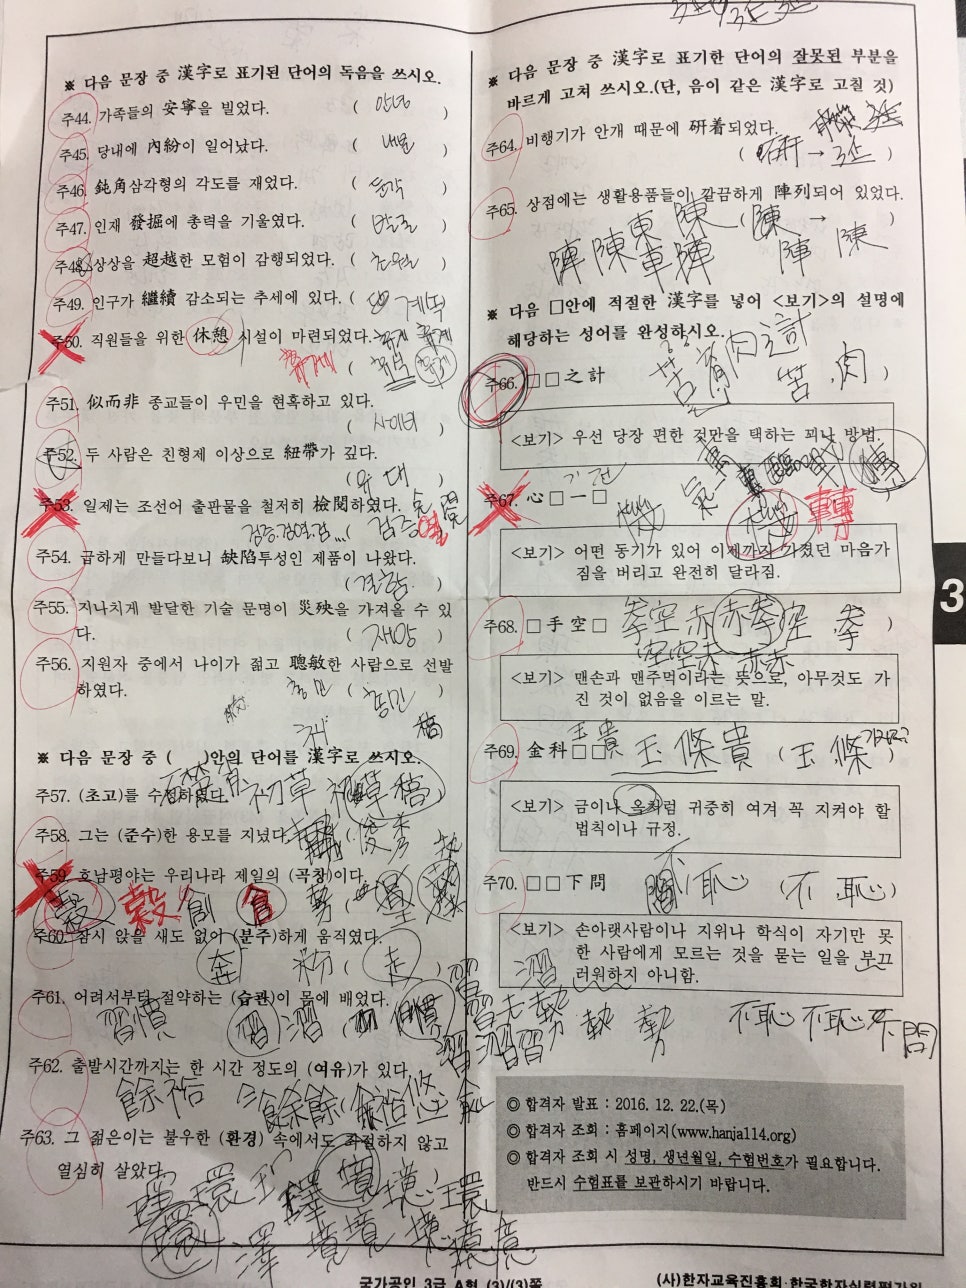 ※ 다음 문장 중 漢字로 표기된 단어의 독음을 쓰시오.
주44. 가족들의 安寧을 빌었다. ( 안녕 )
주45. 당내에 內紛이 일어났다. ( 내분 )
주46. 鈍角삼각형의 각도를 재었다. ( 둔각 )
주47. 인재 發掘에 총력을 기울였다. ( 발굴 )
주48. 상상을 超越한 모험이 감행되었다. ( 초월 )
주49. 인구가 繼續 감소되는 추세에 있다. ( 계속 )
주50. 직원들을 위한 休憩 시설이 마련되었다.
휴게 ( )
주51. 似而非 종교들이 우민을 현혹하고 있다.
( 사이비 )
주52. 두 사람은 친형제 이상으로 紐帶가 깊다.
( 유대 )
주53. 일제는 조선어 출판물을 철저히 檢閱하였다.
( 검 열 )
주54. 급하게 만들다보니 缺陷투성인 제품이 나왔다.
( 결함 )
주55. 지나치게 발달한 기술 문명이 災殃을 가져올 수 있
다. ( 재앙 )
주56. 지원자 중에서 나이가 젊고 聰敏한 사람으로 선발
하였다. 총민 ( 총민 )
※ 다음 문장 중 ( )안의 단어를 漢字로 쓰시오.
주57. (초고)를 수정하였다. 初草 草稿
주58. 그는 (준수)한 용모를 지녔다. 俊秀
주59. 호남평야는 우리나라 제일의 (곡창)이다.
穀 穀 創 倉
주60. 잠시 앉을 새도 없어 (분주)하게 움직였다.
奔 ( 走 )
주61. 어려서부터 절약하는 (습관)이 몸에 배었다.
習慣 習 慣
주62. 출발시간까지는 한 시간 정도의 (여유)가 있다.
餘裕 餘餘 餘裕
주63. 그 젊은이는 불우한 (환경) 속에서도 좌절하지 않고
열심히 살았다.
環 境
※ 다음 문장 중 漢字로 표기한 단어의 잘못된 부분을
바르게 고쳐 쓰시오.(단, 음이 같은 漢字로 고칠 것)
주64. 비행기가 안개 때문에 硏着되었다.
( 硏 → 延 )
주65. 상점에는 생활용품들이 깔끔하게 陣列되어 있었다.
陣 陳 東 陳 ( → )
陣 陳
※ 다음 □안에 적절한 漢字를 넣어 <보기>의 설명에
해당하는 성어를 완성하시오.
주66. □□之計 苦 肉 )
<보기> 우선 당장 편한 것만을 택하는 꾀나 방법.
주67. 心□一□ 機 轉
<보기> 어떤 동기가 있어 이제까지 가졌던 마음가
짐을 버리고 완전히 달라짐.
주68. □手空□ 拳空赤 赤拳空 拳 )
<보기> 맨손과 맨주먹이라는 뜻으로, 아무것도 가
진 것이 없음을 이르는 말.
주69. 金科□□ 玉條貴 ( 玉, 條 )
<보기> 금이나 옥처럼 귀중히 여겨 꼭 지켜야 할
법칙이나 규정.
주70. □□下問 恥 ( 不, 恥 )
<보기> 손아랫사람이나 지위나 학식이 자기만 못
한 사람에게 모르는 것을 묻는 일을 부끄
러워하지 아니함.
不恥 不恥 下問
◎ 합격자 발표 : 2016. 12. 22.(목)
◎ 합격자 조회 : 홈페이지(www.hanja114.org)
◎ 합격자 조회 시 성명, 생년월일, 수험번호가 필요합니다.
반드시 수험표를 보관하시기 바랍니다.
3
국가공인 3급 A형 (3)/(3)쪽
(사)한자교육진흥회·한국한자실력평가원